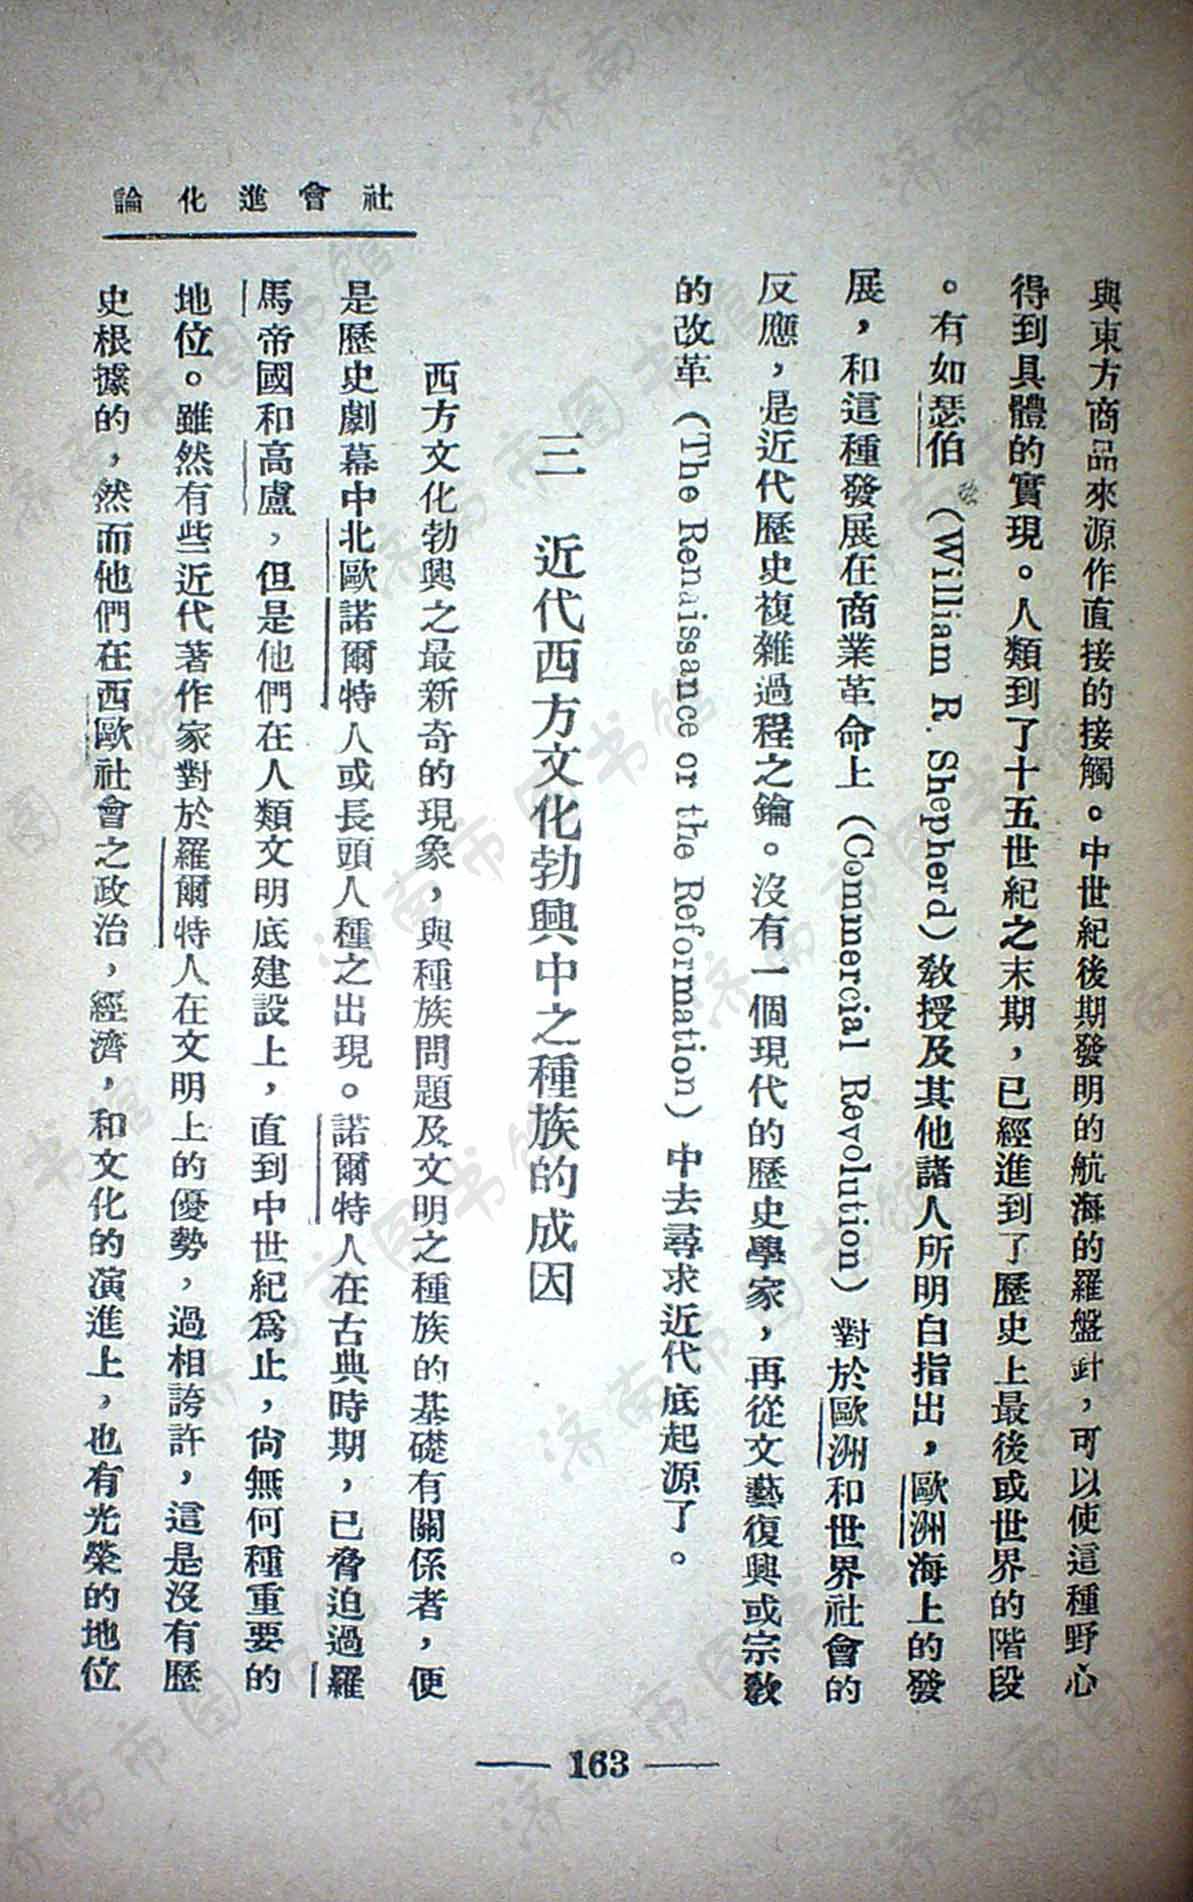 社會進化論
與東方商品來源作直接的接觸。中世紀後期發明的航海的羅盤針，可以使這種野心
得到具體的實現。人類到了十五世紀之末期，已經進到了歷史上最後或世界的階段
。有如瑟伯（William R. Shepherd）教授及其他諸人所明白指出，歐洲海上的發
展，和這種發展在商業革命上（Commercial Revolution）對於歐洲和世界社會的
反應，是近代歷史複雜過程之鑰。沒有一個現代的歷史學家，再從文藝復興或宗教
的改革（The Renaissance or the Reformation）中去尋求近代底起源了。
三　近代西方文化勃興中之種族的成因
西方文化勃興之最新奇的現象，與種族問題及文明之種族的基礎有關係者，便
是歷史劇幕中北歐諾爾特人或長頭人種之出現。諾爾特人在古典時期，已脅迫過羅
馬帝國和高盧，但是他們在人類文明底建設上，直到中世紀爲止，尙無何種重要的
地位。雖然有些近代著作家對於羅爾特人在文明上的優勢，過相誇許，這是沒有歷
史根據的，然而他們在西歐社會之政治，經濟，和文化的演進上，也有光榮的地位
— 163 —
济南市图书馆